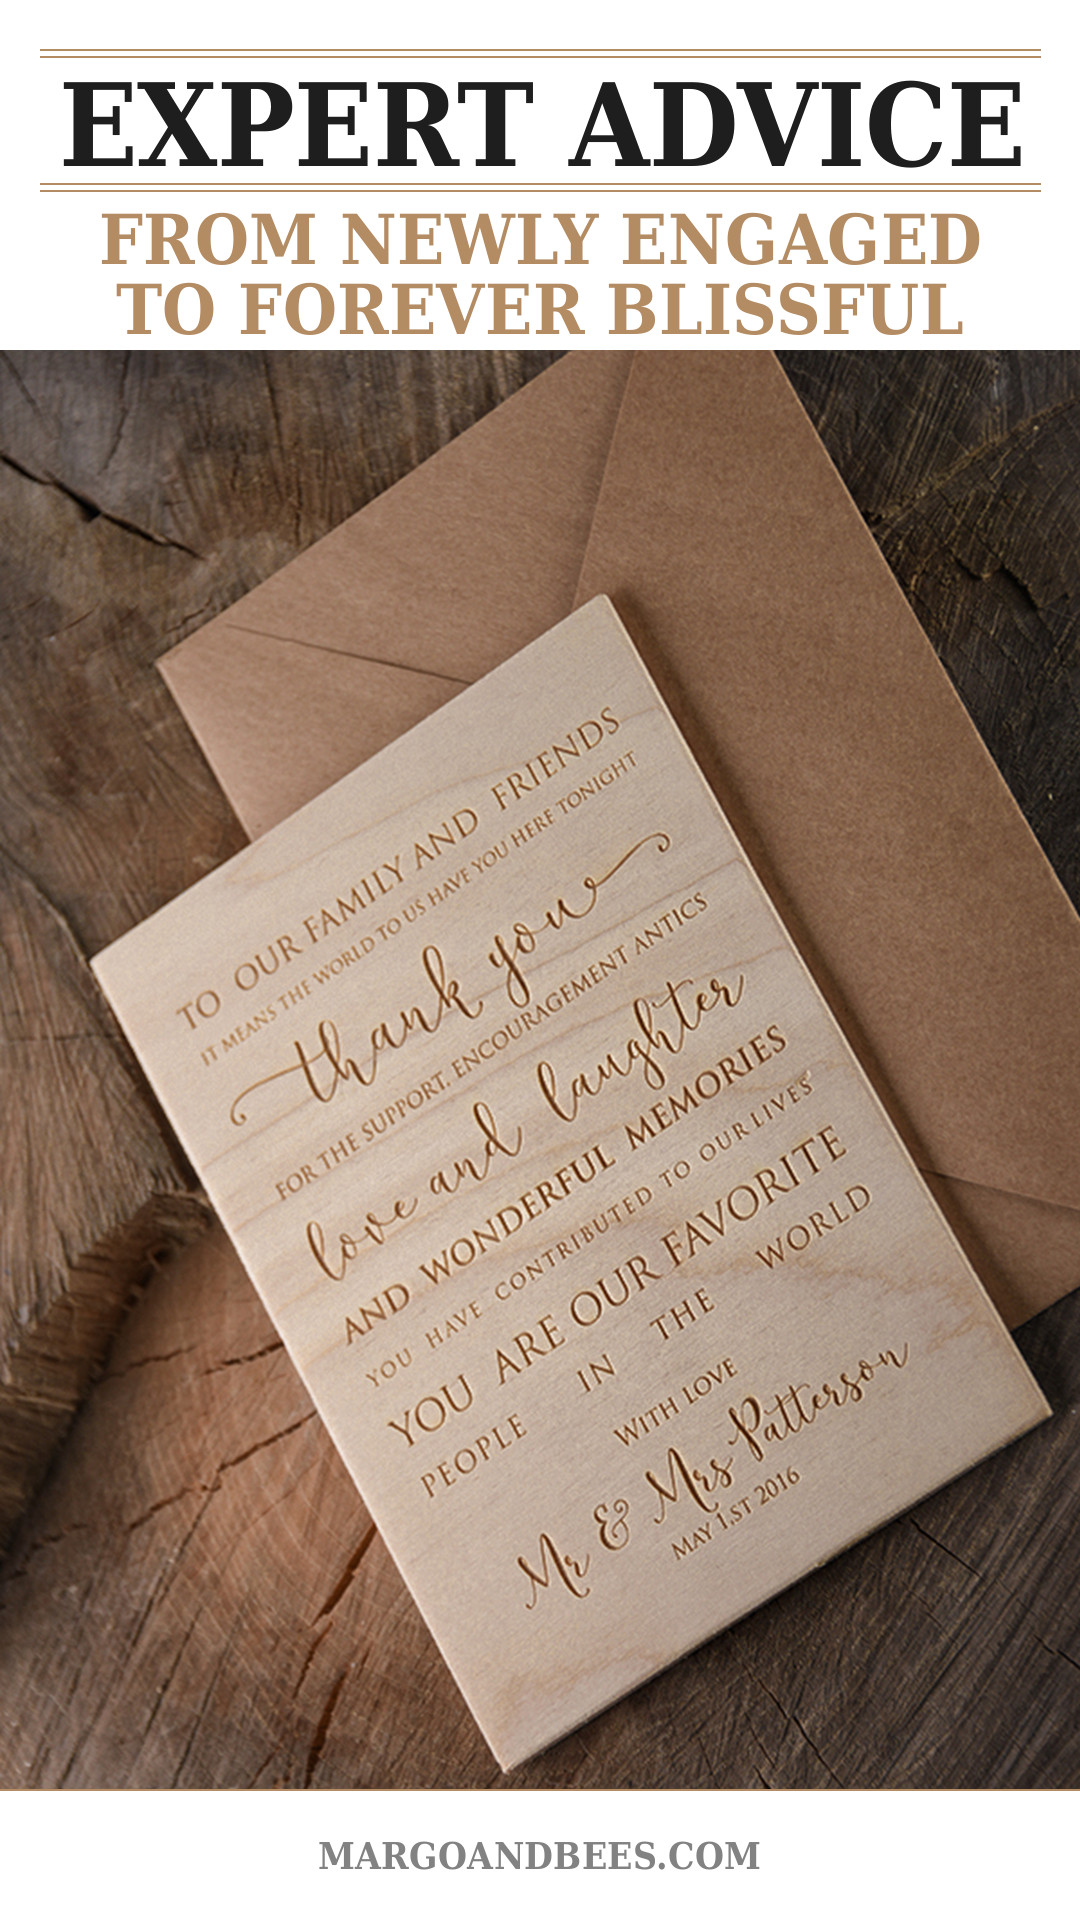 EXPERT ADVICE
FROM NEWLY ENGAGED
TO FOREVER BLISSFUL
TO OUR FAMILY AND FRIENDS
IT MEANS THE WORLD TO US HAVE YOU HERE TONIGHT
thank you
FOR THE SUPPORT, ENCOURAGEMENT ANTICS
love and laughter
AND WONDERFUL MEMORIES
YOU HAVE CONTRIBUTED TO OUR LIVES
YOU ARE OUR FAVORITE
PEOPLE IN THE WORLD
WITH LOVE
Mr & Mrs Patterson
MAY 1.ST 2016
MARGOANDBEES.COM